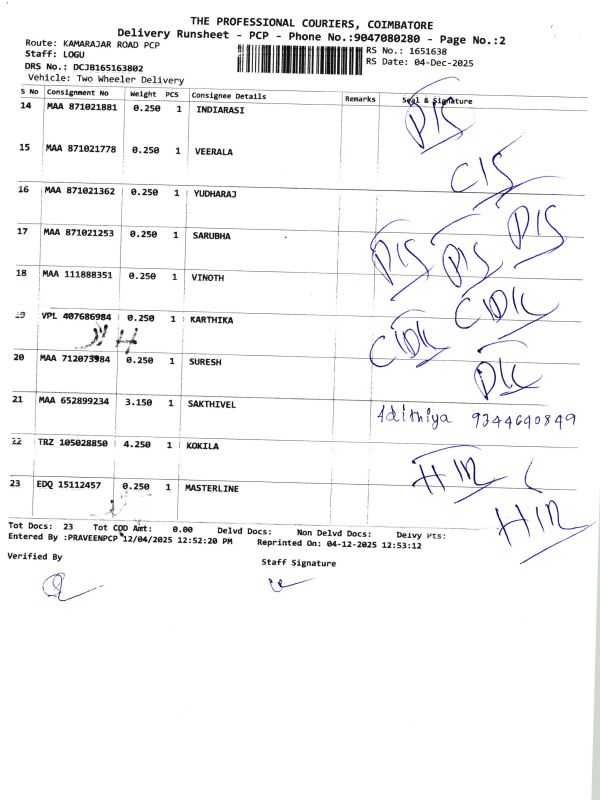 THE PROFESSIONAL COURIERS, COIMBATORE
Delivery Runsheet - PCP - Phone No.:9047080280 - Page No.:2
Route: KAMARAJAR ROAD PCP
RS No.: 1651638
Staff: LOGU
RS Date: 04-Dec-2025
DRS No.: DCJB165163802
Vehicle: Two Wheeler Delivery
S No Consignment No Weight PCS Consignee Details Remarks Seal & Signature
14 MAA 871021881 0.250 1 INDIARASI
15 MAA 871021778 0.250 1 VEERALA
16 MAA 871021362 0.250 1 YUDHARAJ
17 MAA 871021253 0.250 1 SARUBHA
18 MAA 111888351 0.250 1 VINOTH
19 VPL 407686984 0.250 1 KARTHIKA
20 MAA 712073984 0.250 1 SURESH
21 MAA 652899234 3.150 1 SAKTHIVEL Adithiya 9344640849
22 TRZ 105028850 4.250 1 KOKILA
23 EDQ 15112457 0.250 1 MASTERLINE
Tot Docs: 23 Tot COD Amt: 0.00 Delvd Docs: Non Delvd Docs: Delvy Pts:
Entered By :PRAVEENPCP 12/04/2025 12:52:20 PM Reprinted On: 04-12-2025 12:53:12
Verified By
Staff Signature